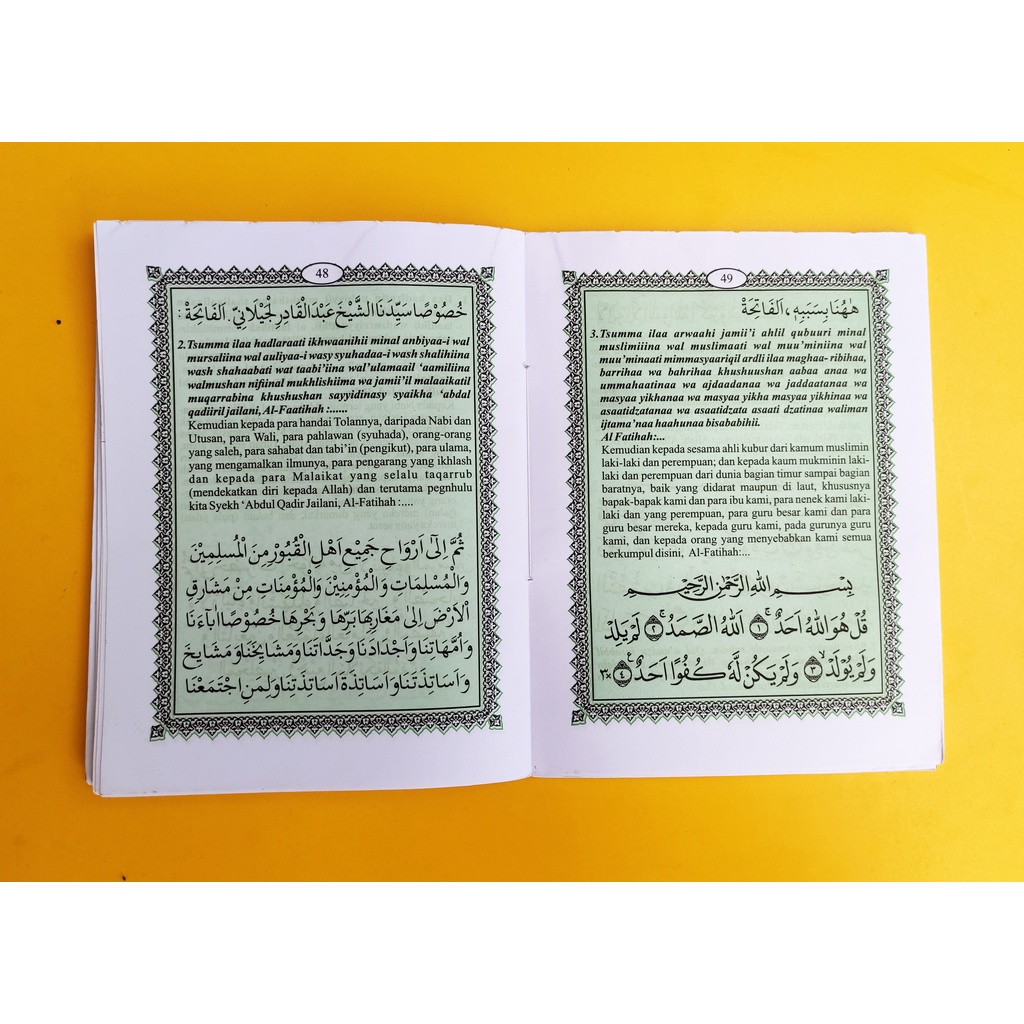 48
خُصُوْصًا سَيِّدَنَا الشَّيْخَ عَبْدَ الْقَادِرِ الْجَيْلَانِيِّ. اَلْفَاتِحَةْ :
2. Tsumma ilaa hadlaraati ikhwaanihii minal anbiyaa-i wal
mursaliina wal auliyaa-i wasy syuhadaa-i wash shalihiina
wash shahaabati wat taabi'iina wal'ulamaail 'aamiliina
walmushan nifiinal mukhlishiima wa jamii'il malaaikatil
muqarrabina khushushan sayyidinasy syaikha 'abdal
qadiiril jailani, Al-Faatihah :......
Kemudian kepada para handai Tolannya, daripada Nabi dan
Utusan, para Wali, para pahlawan (syuhada), orang-orang
yang saleh, para sahabat dan tabi'in (pengikut), para ulama,
yang mengamalkan ilmunya, para pengarang yang ikhlash
dan kepada para Malaikat yang selalu taqarrub
(mendekatkan diri kepada Allah) dan terutama pegnhulu
kita Syekh 'Abdul Qadir Jailani, Al-Fatihah :....
ثُمَّ اِلَىٰٓ اَرْوَاحِ جَمِيْعِ اَهْلِ الْقُبُوْرِ مِنَ الْمُسْلِمِيْنَ
وَالْمُسْلِمَاتِ وَالْمُؤْمِنِيْنَ وَالْمُؤْمِنَاتِ مِنْ مَشَارِقِ
الْاَرْضِ اِلَىٰ مَغَارِبِهَا بَرِّهَا وَبَحْرِهَا خُصُوْصًا اٰبَآءَنَا
وَاُمَّهَاتِنَا وَاَجْدَادَنَا وَجَدَّاتَنَا وَمَشَايِخَنَا وَمَشَايِخَ
وَاَسَاتِذَتَنَا وَاَسَاتِذَةَ اَسَاتِذَتِنَا وَلِمَنِ اجْتَمَعْنَا
49
هٰهُنَا بِسَبَبِهِ، اَلْفَاتِحَةْ
3. Tsumma ilaa arwaahi jamii'i ahlil qubuuri minal
muslimiiina wal muslimaati wal muu'miniina wal
muu'minaati mimmasyaariqil ardli ilaa maghaa- ribihaa,
barrihaa wa bahrihaa khushuushan aabaa anaa wa
ummahaatinaa wa ajdaadanaa wa jaddaatanaa wa
masyaa yikhanaa wa masyaa yikha masyaa yikhinaa wa
asaatidzatanaa wa asaatidzata asaati dzatinaa waliman
ijtama'naa haahunaa bisababihii.
Al Fatihah:...
Kemudian kepada sesama ahli kubur dari kamum muslimin
laki-laki dan perempuan; dan kepada kaum mukminin laki-
laki dan perempuan dari dunia bagian timur sampai bagian
baratnya, baik yang didarat maupun di laut, khususnya
bapak-bapak kami dan para ibu kami, para nenek kami laki-
laki dan yang perempuan, para guru besar kami dan para
guru besar mereka, kepada guru kami, pada gurunya guru
kami, dan kepada orang yang menyebabkan kami semua
berkumpul disini, Al-Fatihah:...
بِسْمِ اللهِ الرَّحْمٰنِ الرَّحِيْمِ
قُلْ هُوَ اللهُ اَحَدٌ ۚ ﴿١﴾ اَللهُ الصَّمَدُ ۚ ﴿٢﴾ لَمْ يَلِدْ
وَلَمْ يُوْلَدْ ۙ ﴿٣﴾ وَلَمْ يَكُنْ لَّهُ كُفُوًا اَحَدٌ ۚ ﴿٤﴾ ×٣